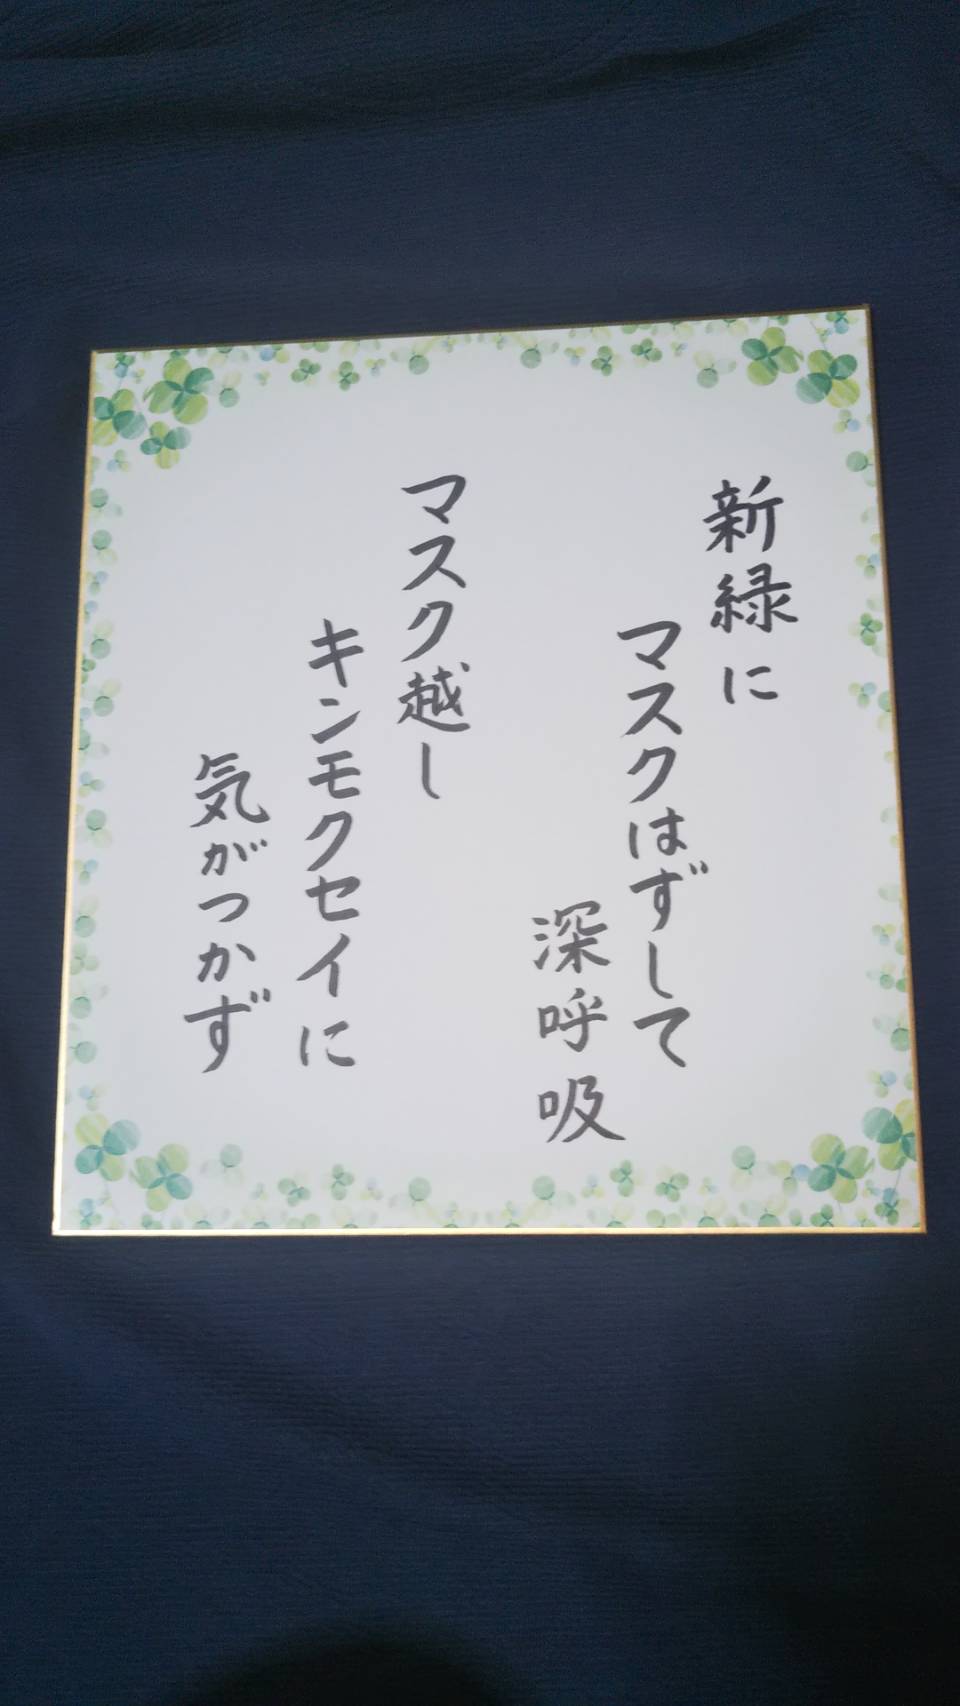 新緑に
マスクはずして
深呼吸
マスク越し
キンモクセイに
気がつかず